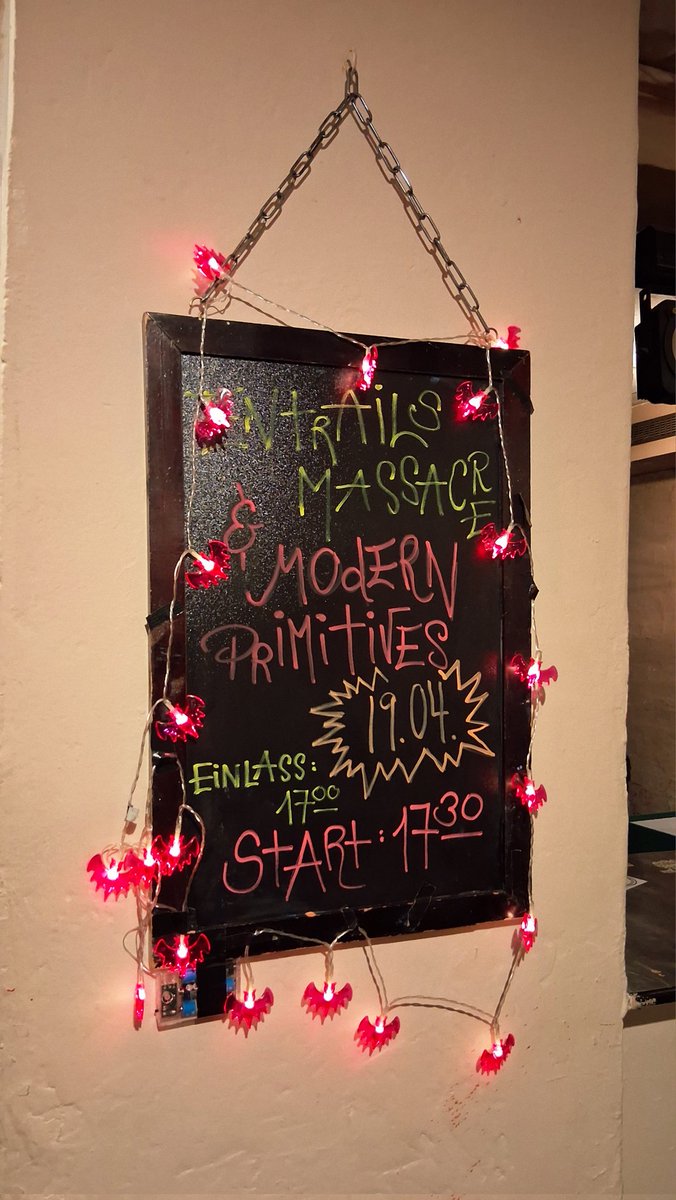 ENtRAiLS
MASSACRE
& MOdERN
PRiMitiVES
19.04.
EiNLASS:
17⁰⁰
StARt: 17³⁰